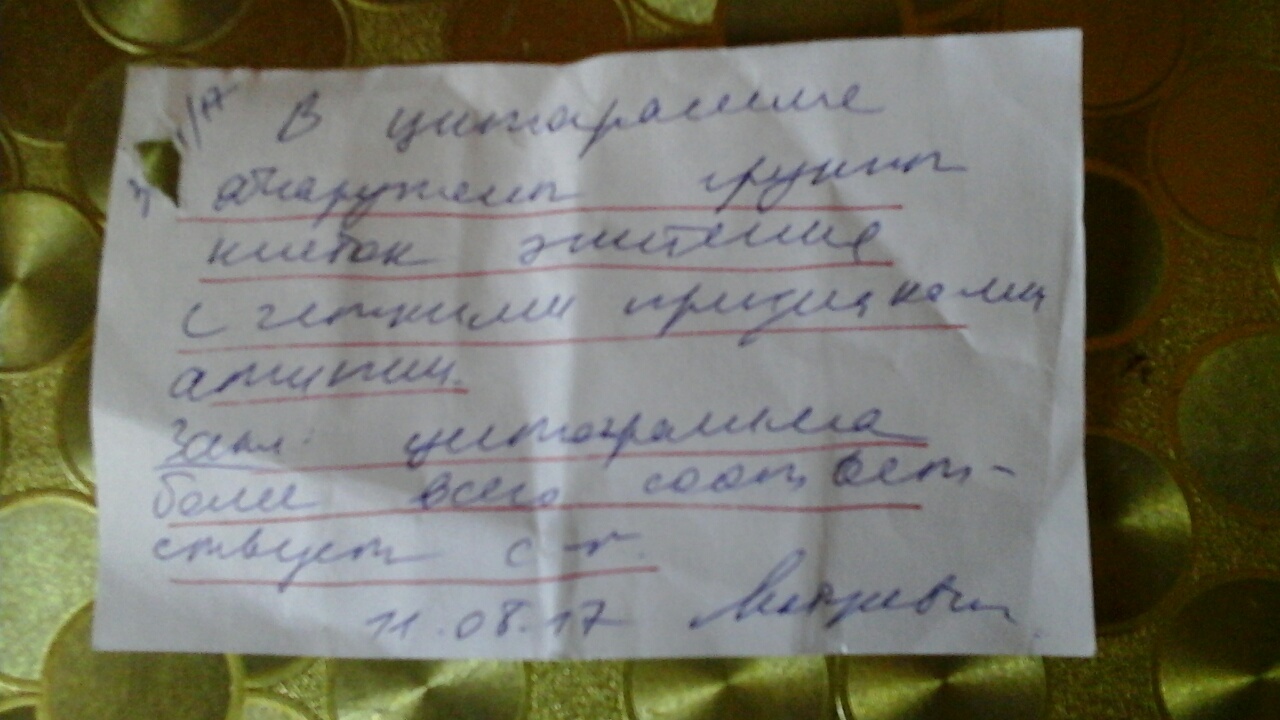 В цитограмме
обнаружены группы
клеток эпителия
с четкими признаками
атипии.
Закл: цитограмма
более всего соответ-
ствует c-r.
11.08.17